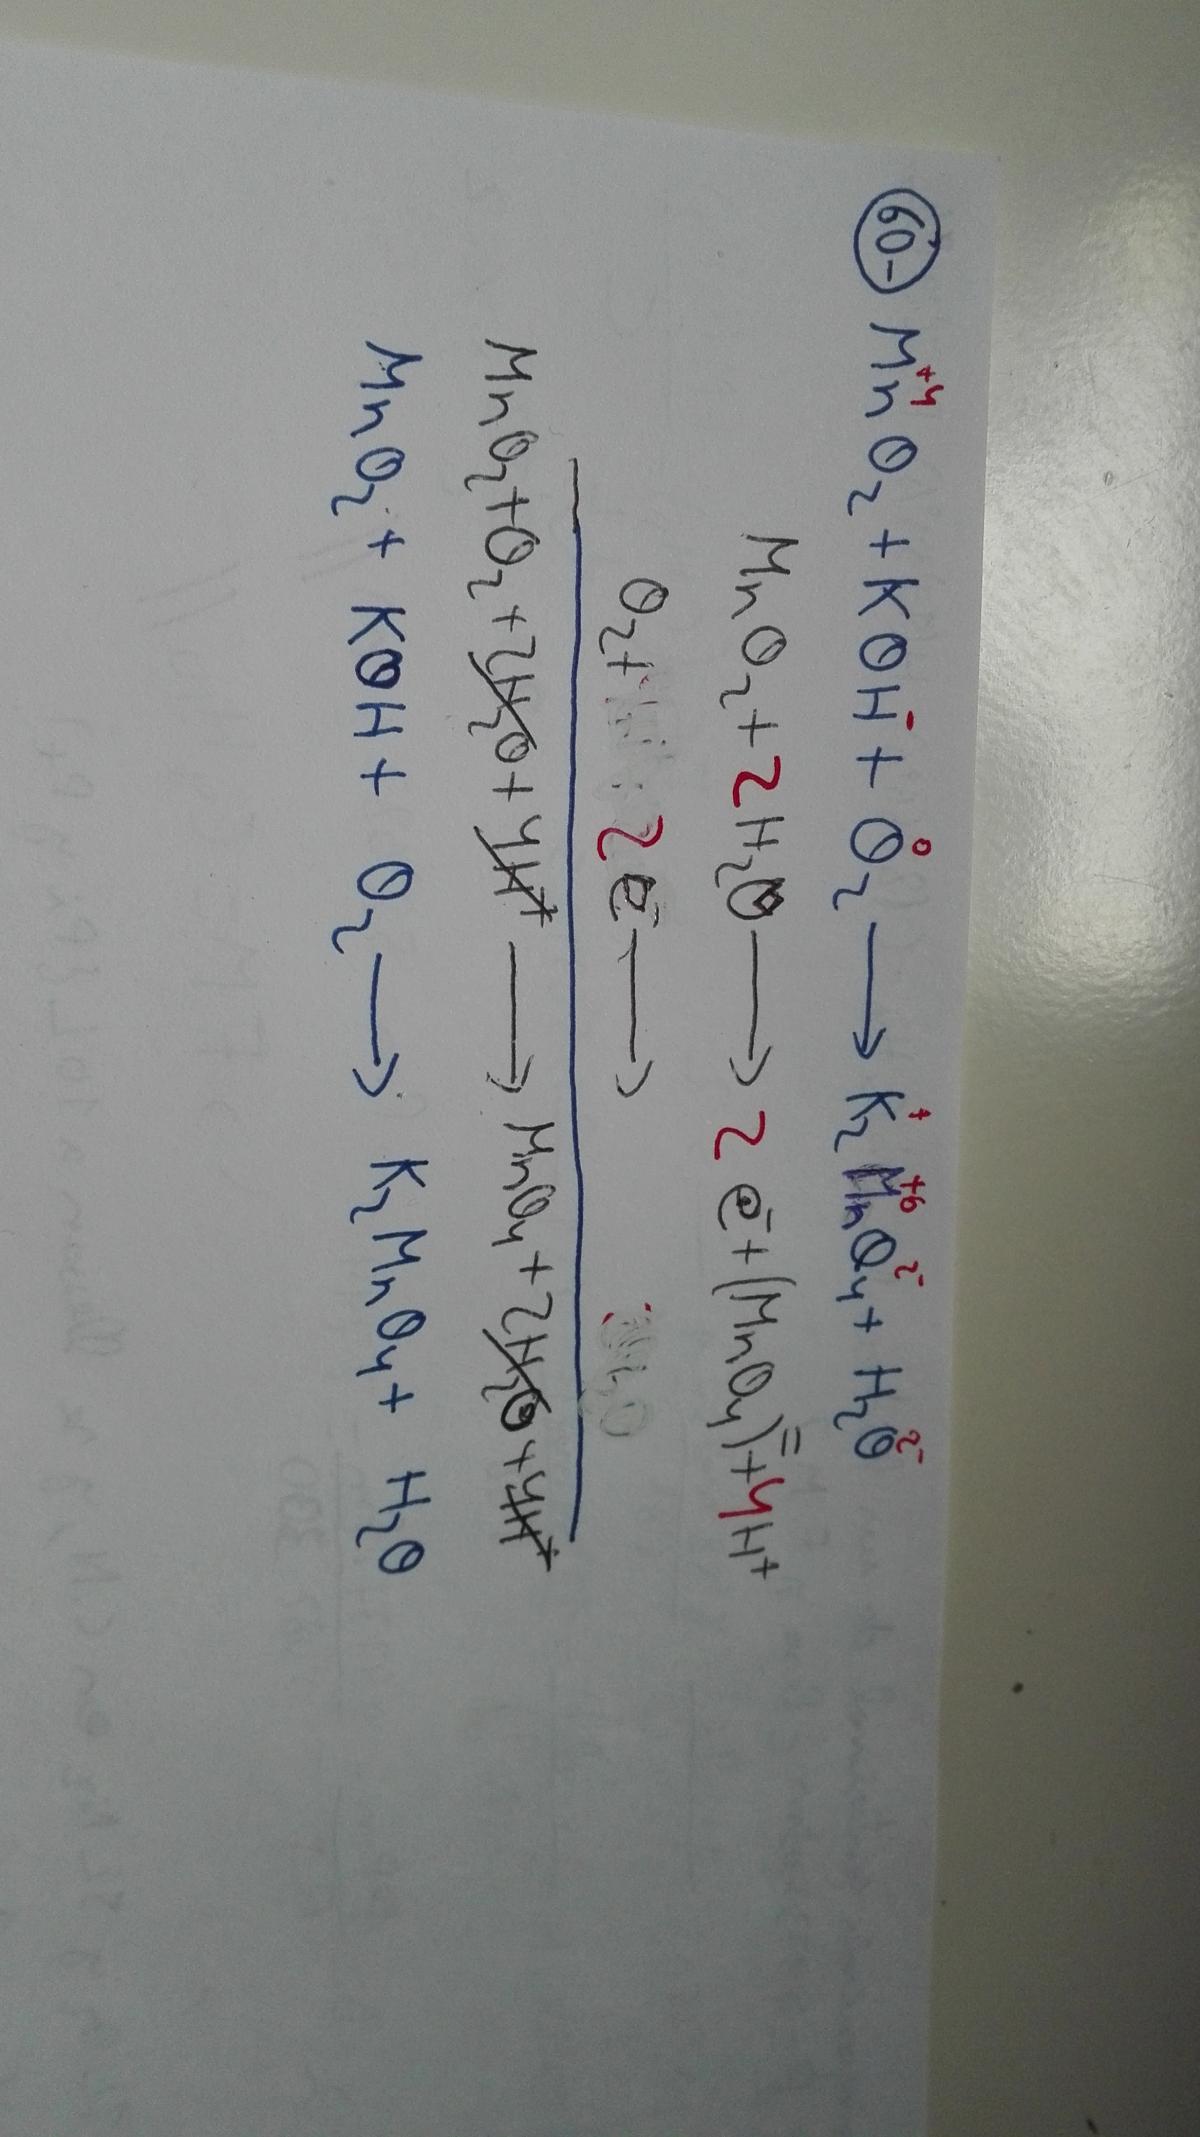 60- MnO₂ + KOH + O₂ → K₂MnO₄ + H₂O
+4 - 0 + +6 2- 2-
MnO₂ + 2H₂O → 2e⁻ + (MnO₄)⁼ + 4H⁺
O₂ + 2e⁻ →
MnO₂ + O₂ + 2H₂O + 4H⁺ → MnO₄ + 2H₂O + 4H⁺
MnO₂ + KOH + O₂ → K₂MnO₄ + H₂O